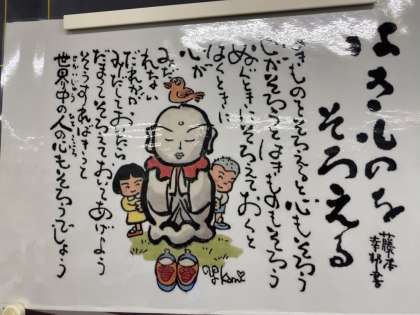 はきものを
そろえる
藤本幸邦書
はきものをそろえると心もそろう
心がそろうとはきものもそろう
ぬぐときにそろえておくと
はくときに
心が
みだれない
だれかが
みだしておいたら
だまってそろえておいてあげよう
そうすればきっと
世界中の人の心もそろうでしょう